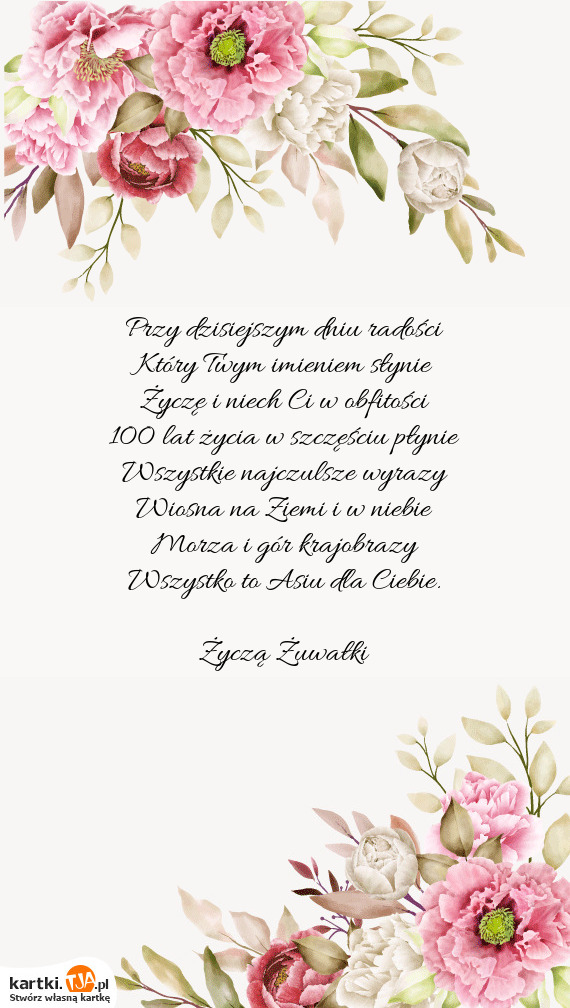 Przy dzisiejszym dniu radości
Który Twym imieniem słynie
Życzę i niech Ci w obfitości
100 lat życia w szczęściu płynie
Wszystkie najczulsze wyrazy
Wiosna na Ziemi i w niebie
Morza i gór krajobrazy
Wszystko to Asiu dla Ciebie.
Życzą Żuwałki
kartki.TJA.pl
Stwórz własną kartkę